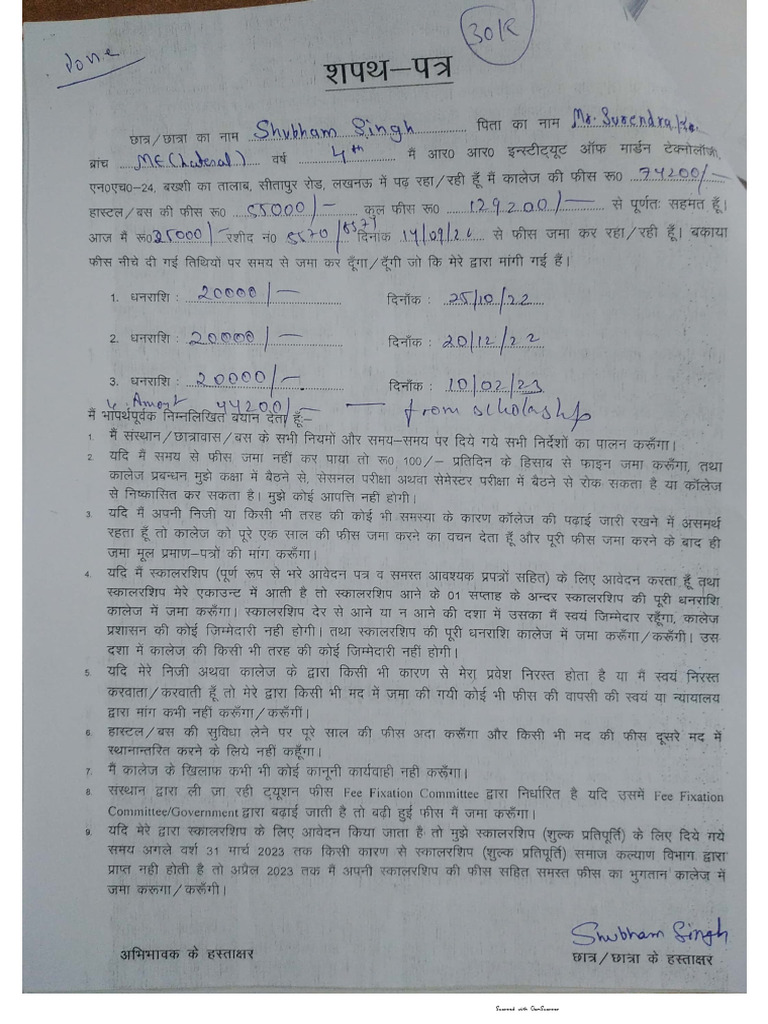 Done
30K
शपथ-पत्र
छात्र/छात्रा का नाम Shubham Singh पिता का नाम Mr. Surendra Kr.
ब्रांच ME(Lateral) वर्ष 4th में आर0 आर0 इन्स्टीट्यूट ऑफ मार्डन टेक्नोलॉजी,
एन0एच0-24, बख्शी का तालाब, सीतापुर रोड, लखनऊ में पढ़ रहा/रही हूँ मैं कालेज की फीस रू0 74200/-
हास्टल/बस की फीस रू0 55000/- कुल फीस रू0 129200/- से पूर्णतः सहमत हूँ।
आज मैं रू0 25000/- रशीद नं0 5570/5571 दिनांक 14/09/22 से फीस जमा कर रहा/रही हूँ। बकाया
फीस नीचे दी गई तिथियों पर समय से जमा कर दूँगा/दूँगी जो कि मेरे द्वारा मांगी गई हैं।
1. धनराशि : 20000/- दिनाँक : 25/10/22
2. धनराशि : 20000/- दिनाँक : 20/12/22
3. धनराशि : 20000/- दिनाँक : 10/02/23
4. Amont 44200/- — from scholaship
मैं भापर्थपूर्वक निम्नलिखित बयान देता हूँ:-
1. मैं संस्थान/छात्रावास/बस के सभी नियमों और समय-समय पर दिये गये सभी निर्देशों का पालन करूँगा।
2. यदि मैं समय से फीस जमा नहीं कर पाया तो रू0 100/- प्रतिदिन के हिसाब से फाइन जमा करूँगा, तथा
कालेज प्रबन्धन मुझे कक्षा में बैठने से, सेसनल परीक्षा अथवा सेमेस्टर परीक्षा में बैठने से रोक सकता है या कॉलेज
से निष्कासित कर सकता है। मुझे कोई आपत्ति नहीं होगी।
3. यदि मैं अपनी निजी या किसी भी तरह की कोई भी समस्या के कारण कॉलेज की पढ़ाई जारी रखने में असमर्थ
रहता हूँ तो कालेज को पूरे एक साल की फीस जमा करने का वचन देता हूँ और पूरी फीस जमा करने के बाद ही
जमा मूल प्रमाण-पत्रों की मांग करूँगा।
4. यदि मैं स्कालरशिप (पूर्ण रूप से भरे आवेदन पत्र व समस्त आवश्यक प्रपत्रों सहित) के लिए आवेदन करता हूँ तथा
स्कालरशिप मेरे एकाउन्ट में आती है तो स्कालरशिप आने के 01 संप्ताह के अन्दर स्कालरशिप की पूरी धनराशि
कालेज में जमा करूँगा। स्कालरशिप देर से आने या न आने की दशा में उसका मैं स्वयं जिम्मेदार रहूँगा, कालेज
प्रशासन की कोई ज़िम्मेदारी नही होगी। तथा स्कालरशिप की पूरी धनराशि कालेज में जमा करूँगा/करूँगी। उस
दशा में कालेज की किसी भी तरह की कोई जिम्मेदारी नहीं होगी।
5. यदि मेरे निजी अथवा कालेज के द्वारा किसी भी कारण से मेरा प्रवेश निरस्त होता है या मैं स्वयं निरस्त
करवाता/करवाती हूँ तो मेरे द्वारा किसी भी मद में जमा की गयी कोई भी फीस की वापसी की स्वयं या न्यायालय
द्वारा मांग कभी नहीं करूँगा/करूँगीं।
6. हास्टल/बस की सुविधा लेने पर पूरे साल की फीस अदा करूँगा और किसी भी मद की फीस दूसरे मद में
स्थानान्तरित करने के लिये नहीं कहूँगा।
7. मैं कालेज के खिलाफ कभी भी कोई कानूनी कार्यवाही नही करूँगा।
8. संस्थान द्वारा ली जा रही ट्यूशन फीस Fee Fixation Committee द्वारा निर्धारित है यदि उसमें Fee Fixation
Committee/Government द्वारा बढ़ाई जाती है तो बढ़ी हुई फीस मैं जमा करूँगा।
9. यदि मेरे द्वारा स्कालरशिप के लिए आवेदन किया जाता है तो मुझे स्कालरशिप (शुल्क प्रतिपूर्ति) के लिए दिये गये
समय अगले वर्श 31 मार्च 2023 तक किसी कारण से स्कालरशिप (शुल्क प्रतिपूर्ति) समाज कल्याण विभाग द्वारा
प्राप्त नही होती है तो अप्रैल 2023 तक मैं अपनी स्कालरशिप की फीस सहित समस्त फीस का भुगतान कालेज में
जमा करूगा/करूँगी।
Shubham Singh
अभिभावक के हस्ताक्षर छात्र/छात्रा के हस्ताक्षर
Scanned with CamScanner